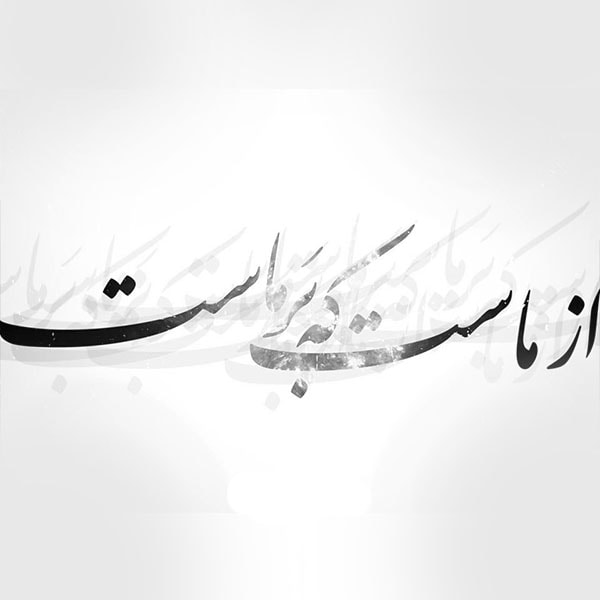 از ماست که بَر ماست